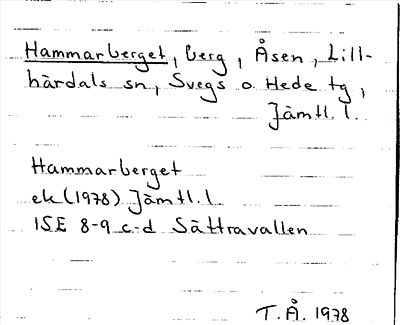 Hammarberget, berg, Åsen, Lill-
härdals sn, Svegs o Hede tg,
Jämtl. l.
Hammarberget
ek (1978) Jämtl. l.
15E 8-9 c-d Sättravallen
T. Å. 1978